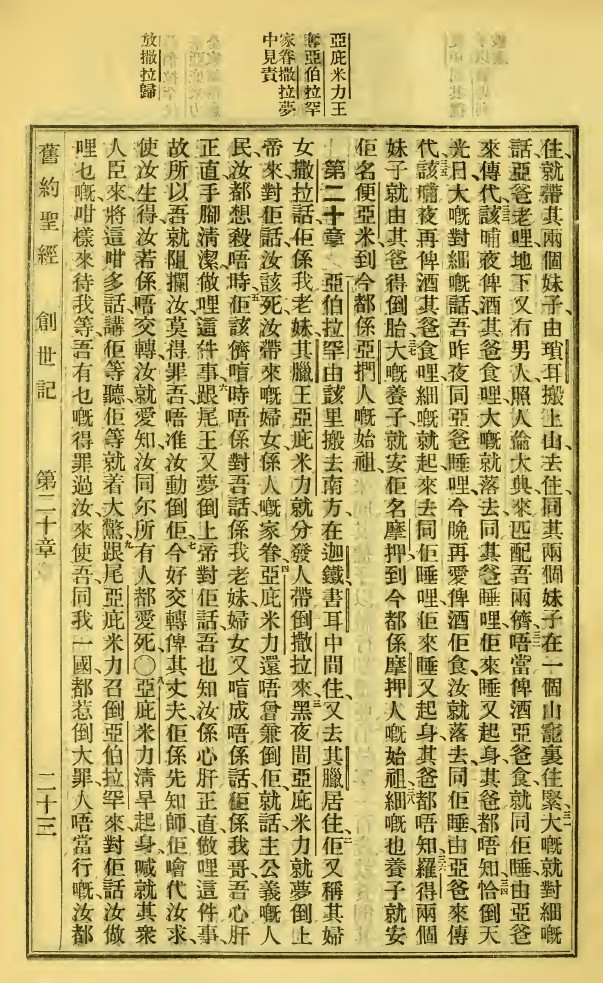 亞庇米力王
奪亞伯拉罕
家眷撒拉夢
中見責
放撒拉歸
住、就帶其兩個妹子由瑣耳搬上山去住、同其兩個妹子在一個山竉裏住緊、三一大嘅就對細嘅
話、亞爸老哩、地下又冇男人照人倫大典來匹配吾兩儕、三二唔當俾酒亞爸食、就同佢睡、由亞爸
來傳代、三三該晡夜俾酒其爸食哩、大嘅就落去同其爸睡哩、佢來睡又起身、其爸都唔知、三四恰倒天
光日、大嘅對細嘅話、吾昨夜同亞爸睡哩、今晚再愛俾酒佢食、汝就落去同佢睡、由亞爸來傳
代、三五該晡夜再俾酒其爸食哩、細嘅就起來去同佢睡哩、佢來睡又起身、其爸都唔知、三六羅得兩個
妹子就由其爸得倒胎、三七大嘅養子就安佢名摩押、到今都係摩押人嘅始祖、三八細嘅也養子就安
佢名便亞米、到今都係亞捫人嘅始祖、
第二十章 亞伯拉罕由該里搬去南方、在迦鐵書耳中間住、又去其臘居住、二佢又稱其婦
女撒拉話、佢係我老妹、其臘王亞庇米力就分發人帶倒撒拉來、三黑夜間亞庇米力就夢倒上
帝來對佢話、汝該死、汝帶來嘅婦女係人嘅家眷、四亞庇米力還唔曾兼倒佢、就話、主公義嘅人
民汝都想殺唔時、五佢該儕喑時唔係對吾話係我老妹、婦女又喑成唔係話佢係我哥、吾心肝
正直手腳清潔做哩這件事、六跟尾王又夢倒上帝對佢話、吾也知汝係心肝正直做哩這件事、
故所以吾就阻攔汝莫得罪吾、唔准汝動倒佢、七今好交轉俾其丈夫、佢係先知師、佢噲代汝求、
使汝生得、汝若係唔交轉、汝就愛知、汝同尔所有人都愛死、○八亞庇米力清早起身、喊就其衆
人臣來、將這咁多話講佢等聽、佢等就着大驚、九跟尾亞庇米力召倒亞伯拉罕來對佢話、汝做
哩乜嘅咁樣來待我等、吾有乜嘅得罪過汝、來使吾同我一國都惹倒大罪、人唔當行嘅、汝都
舊約聖經 創世記 第二十章 二十三